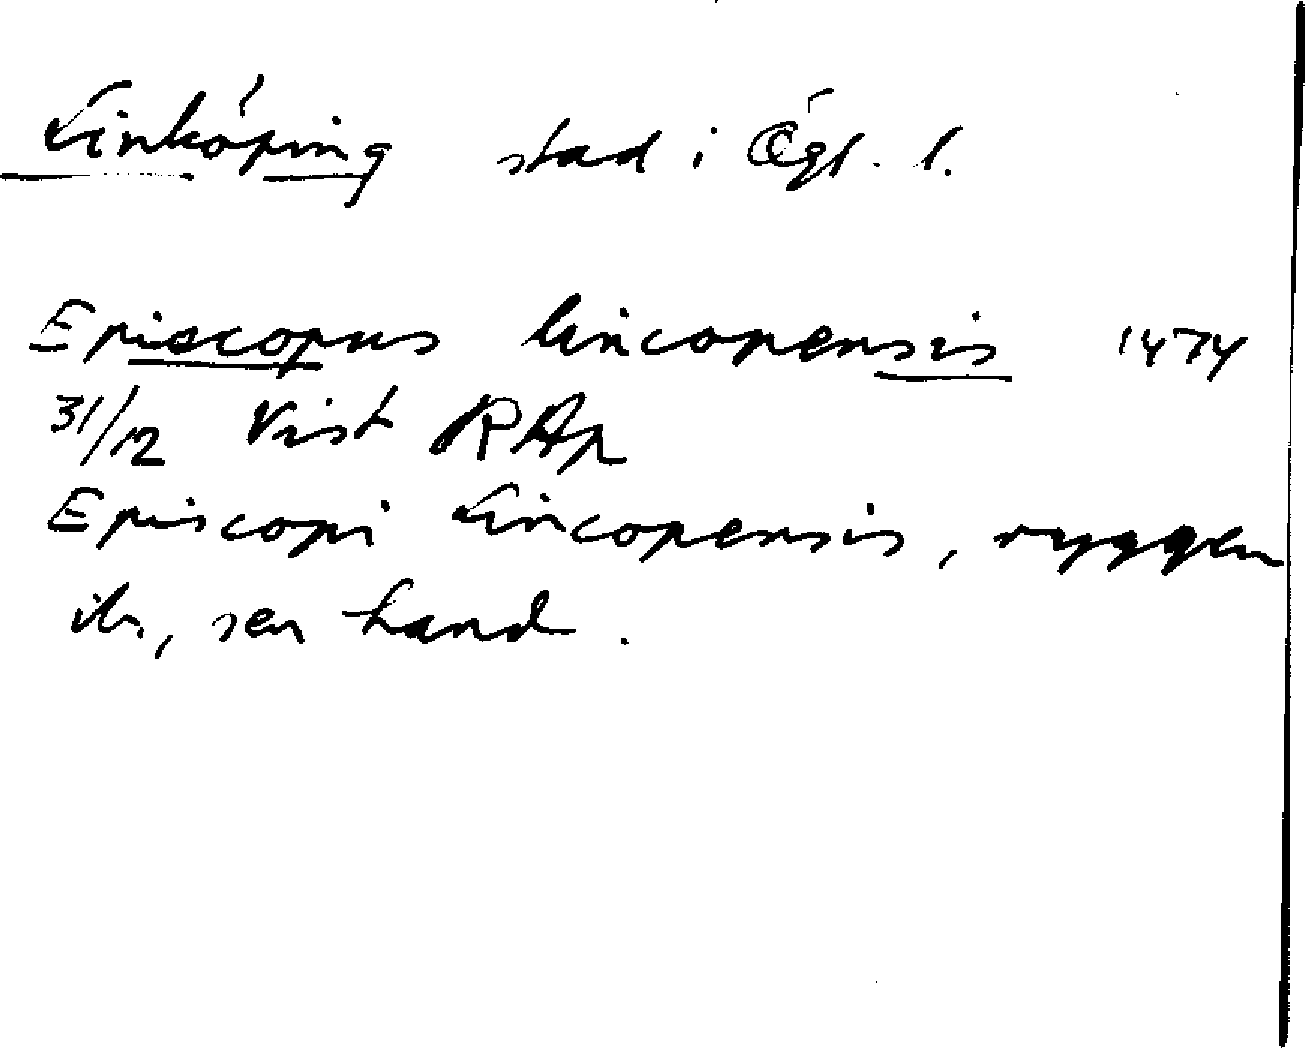 Linköping stad i Ögl. l.
Episcopus lincopensis 1474
31/12 Vist RAp
Episcopi Lincopensis, ryggen
ib, sen hand.